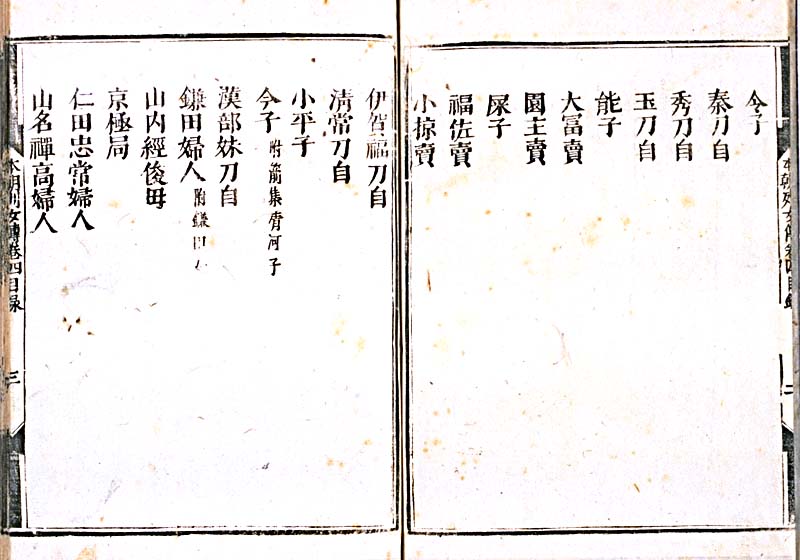 今子
秦刀自
秀刀自
玉刀自
能子
大富賣
園主賣
屎子
福佐賣
小掠賣
伊賀福刀自
清常刀自
小平子
今子 附箭集宵河子
漢部妹刀自
鎌田婦人 附鎌田女
山内經俊母
京極局
仁田忠常婦人
山名禪高婦人
本朝列女傳卷四目録 三